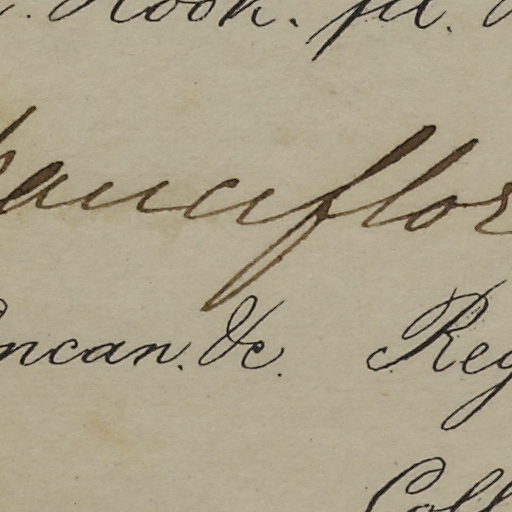 . Hook. fil.
pauciflor
ncan. &c. Reg
Coll